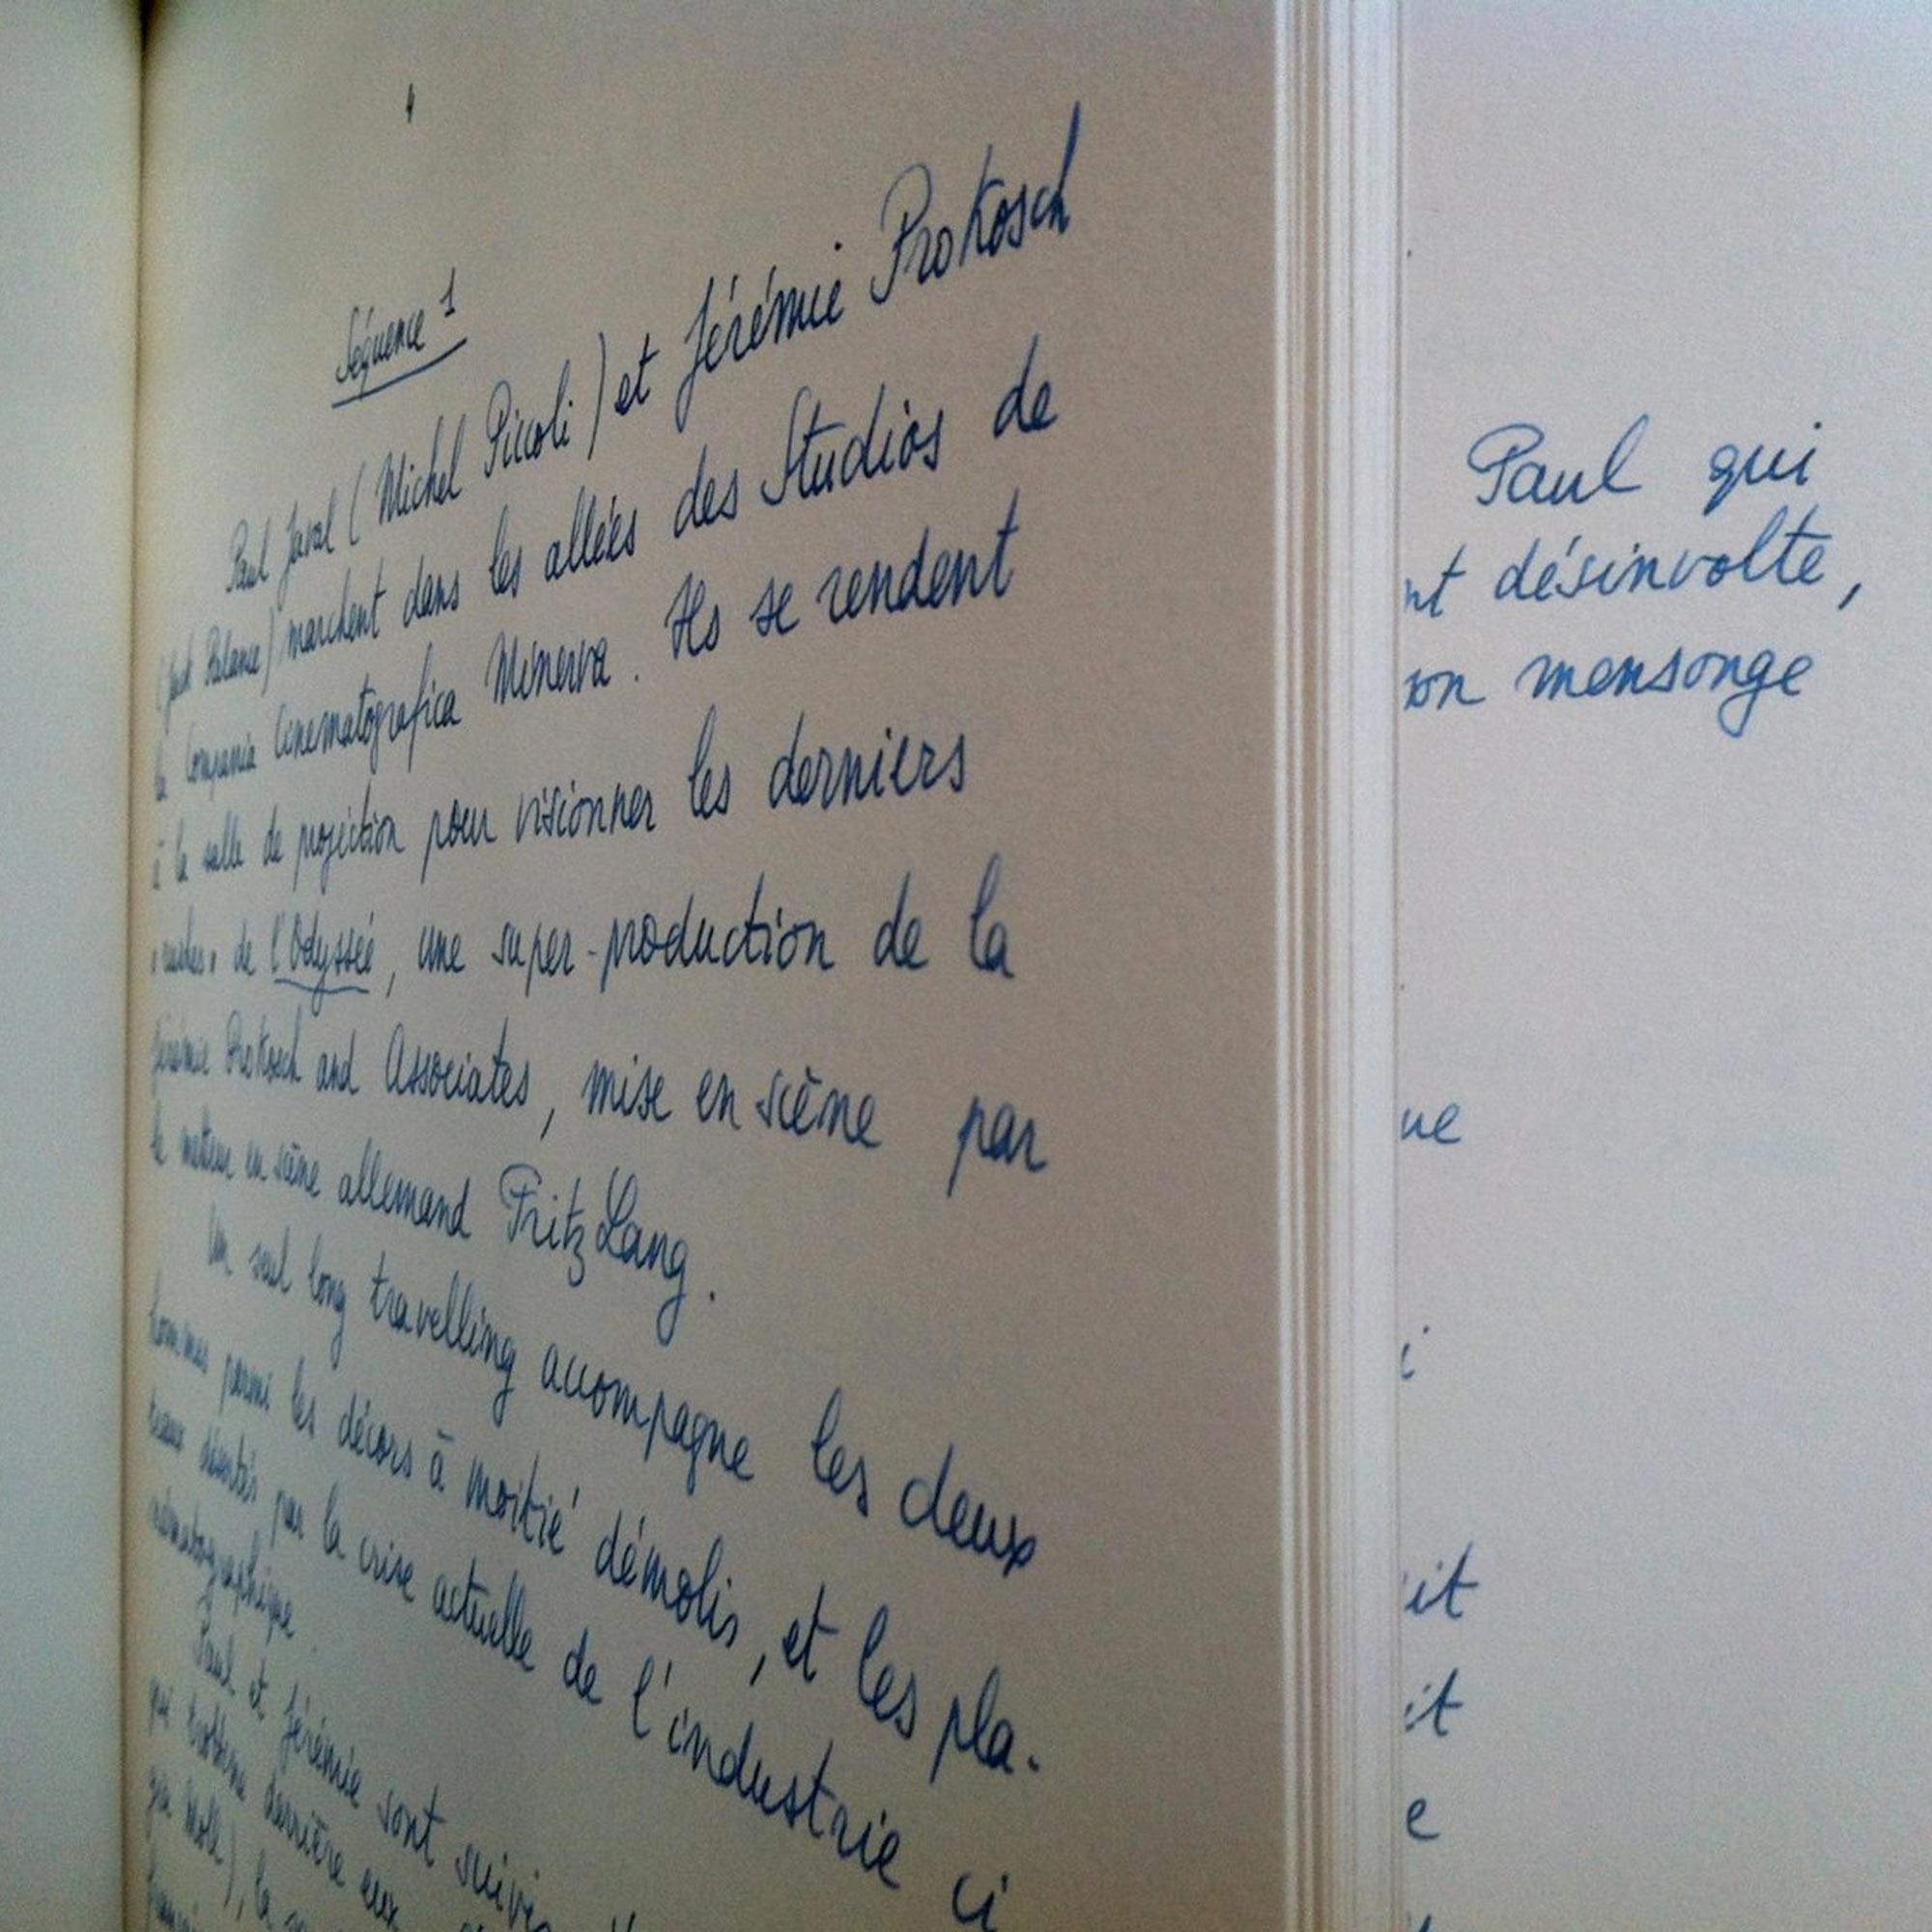 4
Séquence 1
Paul Javal (Michel Piccoli) et Jérémie Prokosch
(Jack Palance) marchent dans les allées des Studios de
la Compania Cinematografica Minerva. Ils se rendent
à la salle de projection pour visionner les derniers
"rushes" de l'Odyssée, une super-production de la
Jérémie Prokosch and Associates, mise en scène par
le metteur en scène allemand Fritz Lang.
Un seul long travelling accompagne les deux
hommes parmi les décors à moitié démolis, et les pla-
teaux désertés par la crise actuelle de l'industrie ci
nématographique.
Paul et Jérémie sont suivis
qui trottine derrière eux
Moll), la
Paul qui
nt désinvolte,
son mensonge
ue
i
it
it
e